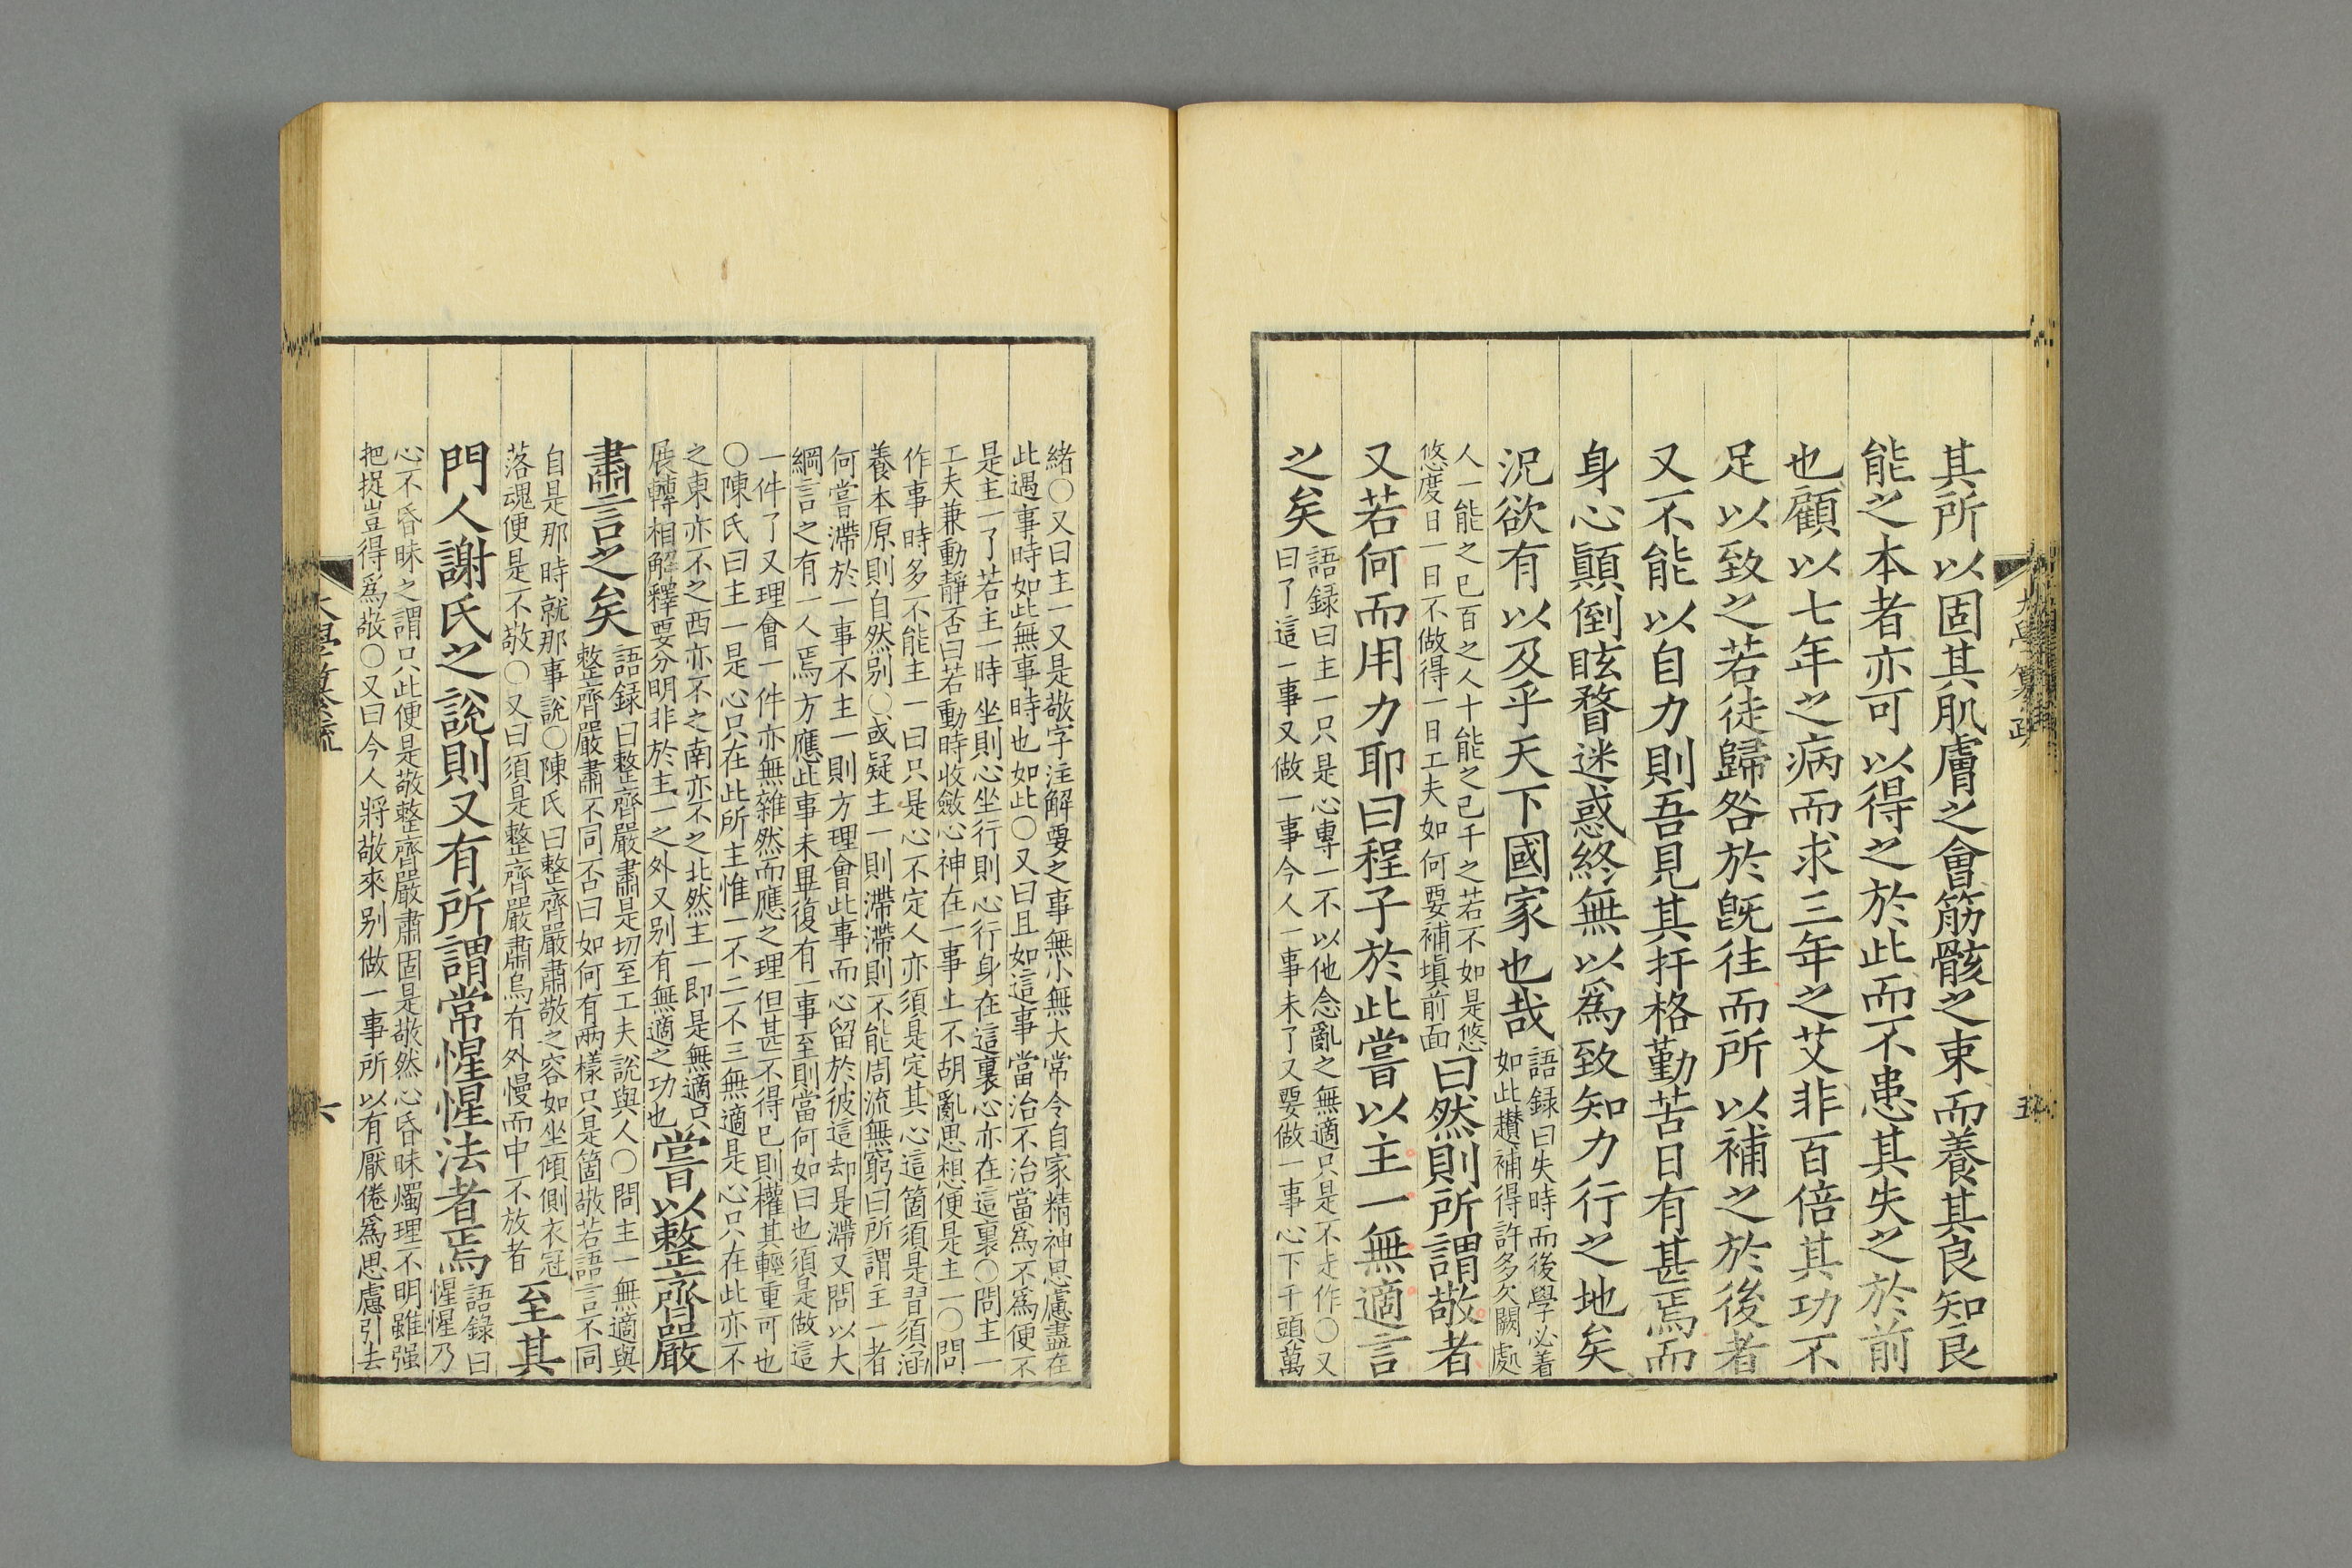 其所以固其肌膚之會筋骸之束而養其良知良
能之本者亦可以得之於此而不患其失之於前
也顧以七年之病而求三年之艾非百倍其功不
足以致之若徒歸咎於旣往而所以補之於後者
又不能以自力則吾見其扞格勤苦日有甚焉而
身心顚倒眩瞀迷惑終無以爲致知力行之地矣
況欲有以及乎天下國家也哉
語録曰失時而後學必着
如此趲補得許多欠闕處
人一能之己百之人十能之己千之若不如是悠
悠度日一日不做得一日工夫如何要補塡前面
曰然則所謂敬者
又若何而用力耶曰程子於此嘗以主一無適言
之矣
語録曰主一只是心專一不以他念亂之無適只是不走作○又
曰了這一事又做一事今人一事未了又要做一事心下千頭萬
緒○又曰主一又是敬字注解要之事無小無大常令自家精神思慮盡在
此遇事時如此無事時也如此○又曰且如這事當治不治當爲不爲便不
是主一了若主一時坐則心坐行則心行身在這裏心亦在這裏○問主一
工夫兼動靜否曰若動時收斂心神在一事上不胡亂思想便是主一○問
作事時多不能主一曰只是心不定人亦須是定其心這箇須是習須涵
養本原則自然别○或疑主一則滯滯則不能周流無窮曰所謂主一者
何嘗滯於一事不主一則方理會此事而心留於彼這却是滯又問以大
綱言之有一人焉方應此事未畢復有一事至則當何如曰也須是做這
一件了又理會一件亦無雜然而應之理但甚不得已則權其輕重可也
○陳氏曰主一是心只在此所主惟一不二不三無適是心只在此亦不
之東亦不之西亦不之南亦不之北然主一即是無適只
展轉相解釋要分明非於主一之外又别有無適之功也
嘗以整齊嚴
肅言之矣
語録曰整齊嚴肅是切至工夫說與人○問主一無適與
整齊嚴肅不同否曰如何有兩樣只是箇敬若語言不同
自是那時就那事說○陳氏曰整齊嚴肅敬之容如坐傾側衣冠
落魂便是不敬○又曰須是整齊嚴肅烏有外慢而中不放者
至其
門人謝氏之說則又有所謂常惺惺法者焉
語録曰
惺惺乃
心不昏昧之謂只此便是敬整齊嚴肅固是敬然心昏昧燭理不明雖强
把捉豈得爲敬○又曰今人將敬來别做一事所以有厭倦爲思慮引去
六